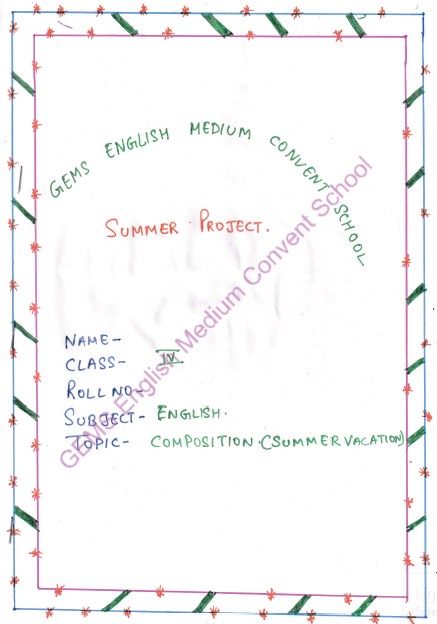 GEMS ENGLISH MEDIUM CONVENT SCHOOL
SUMMER PROJECT.
NAME-
CLASS- IV
ROLL NO-
SUBJECT- ENGLISH.
TOPIC- COMPOSITION.(SUMMER VACATION)
GEMS English Medium Convent School